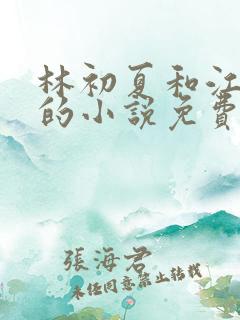 林初夏和江
的小說免費
張海君
未經同意禁止转載